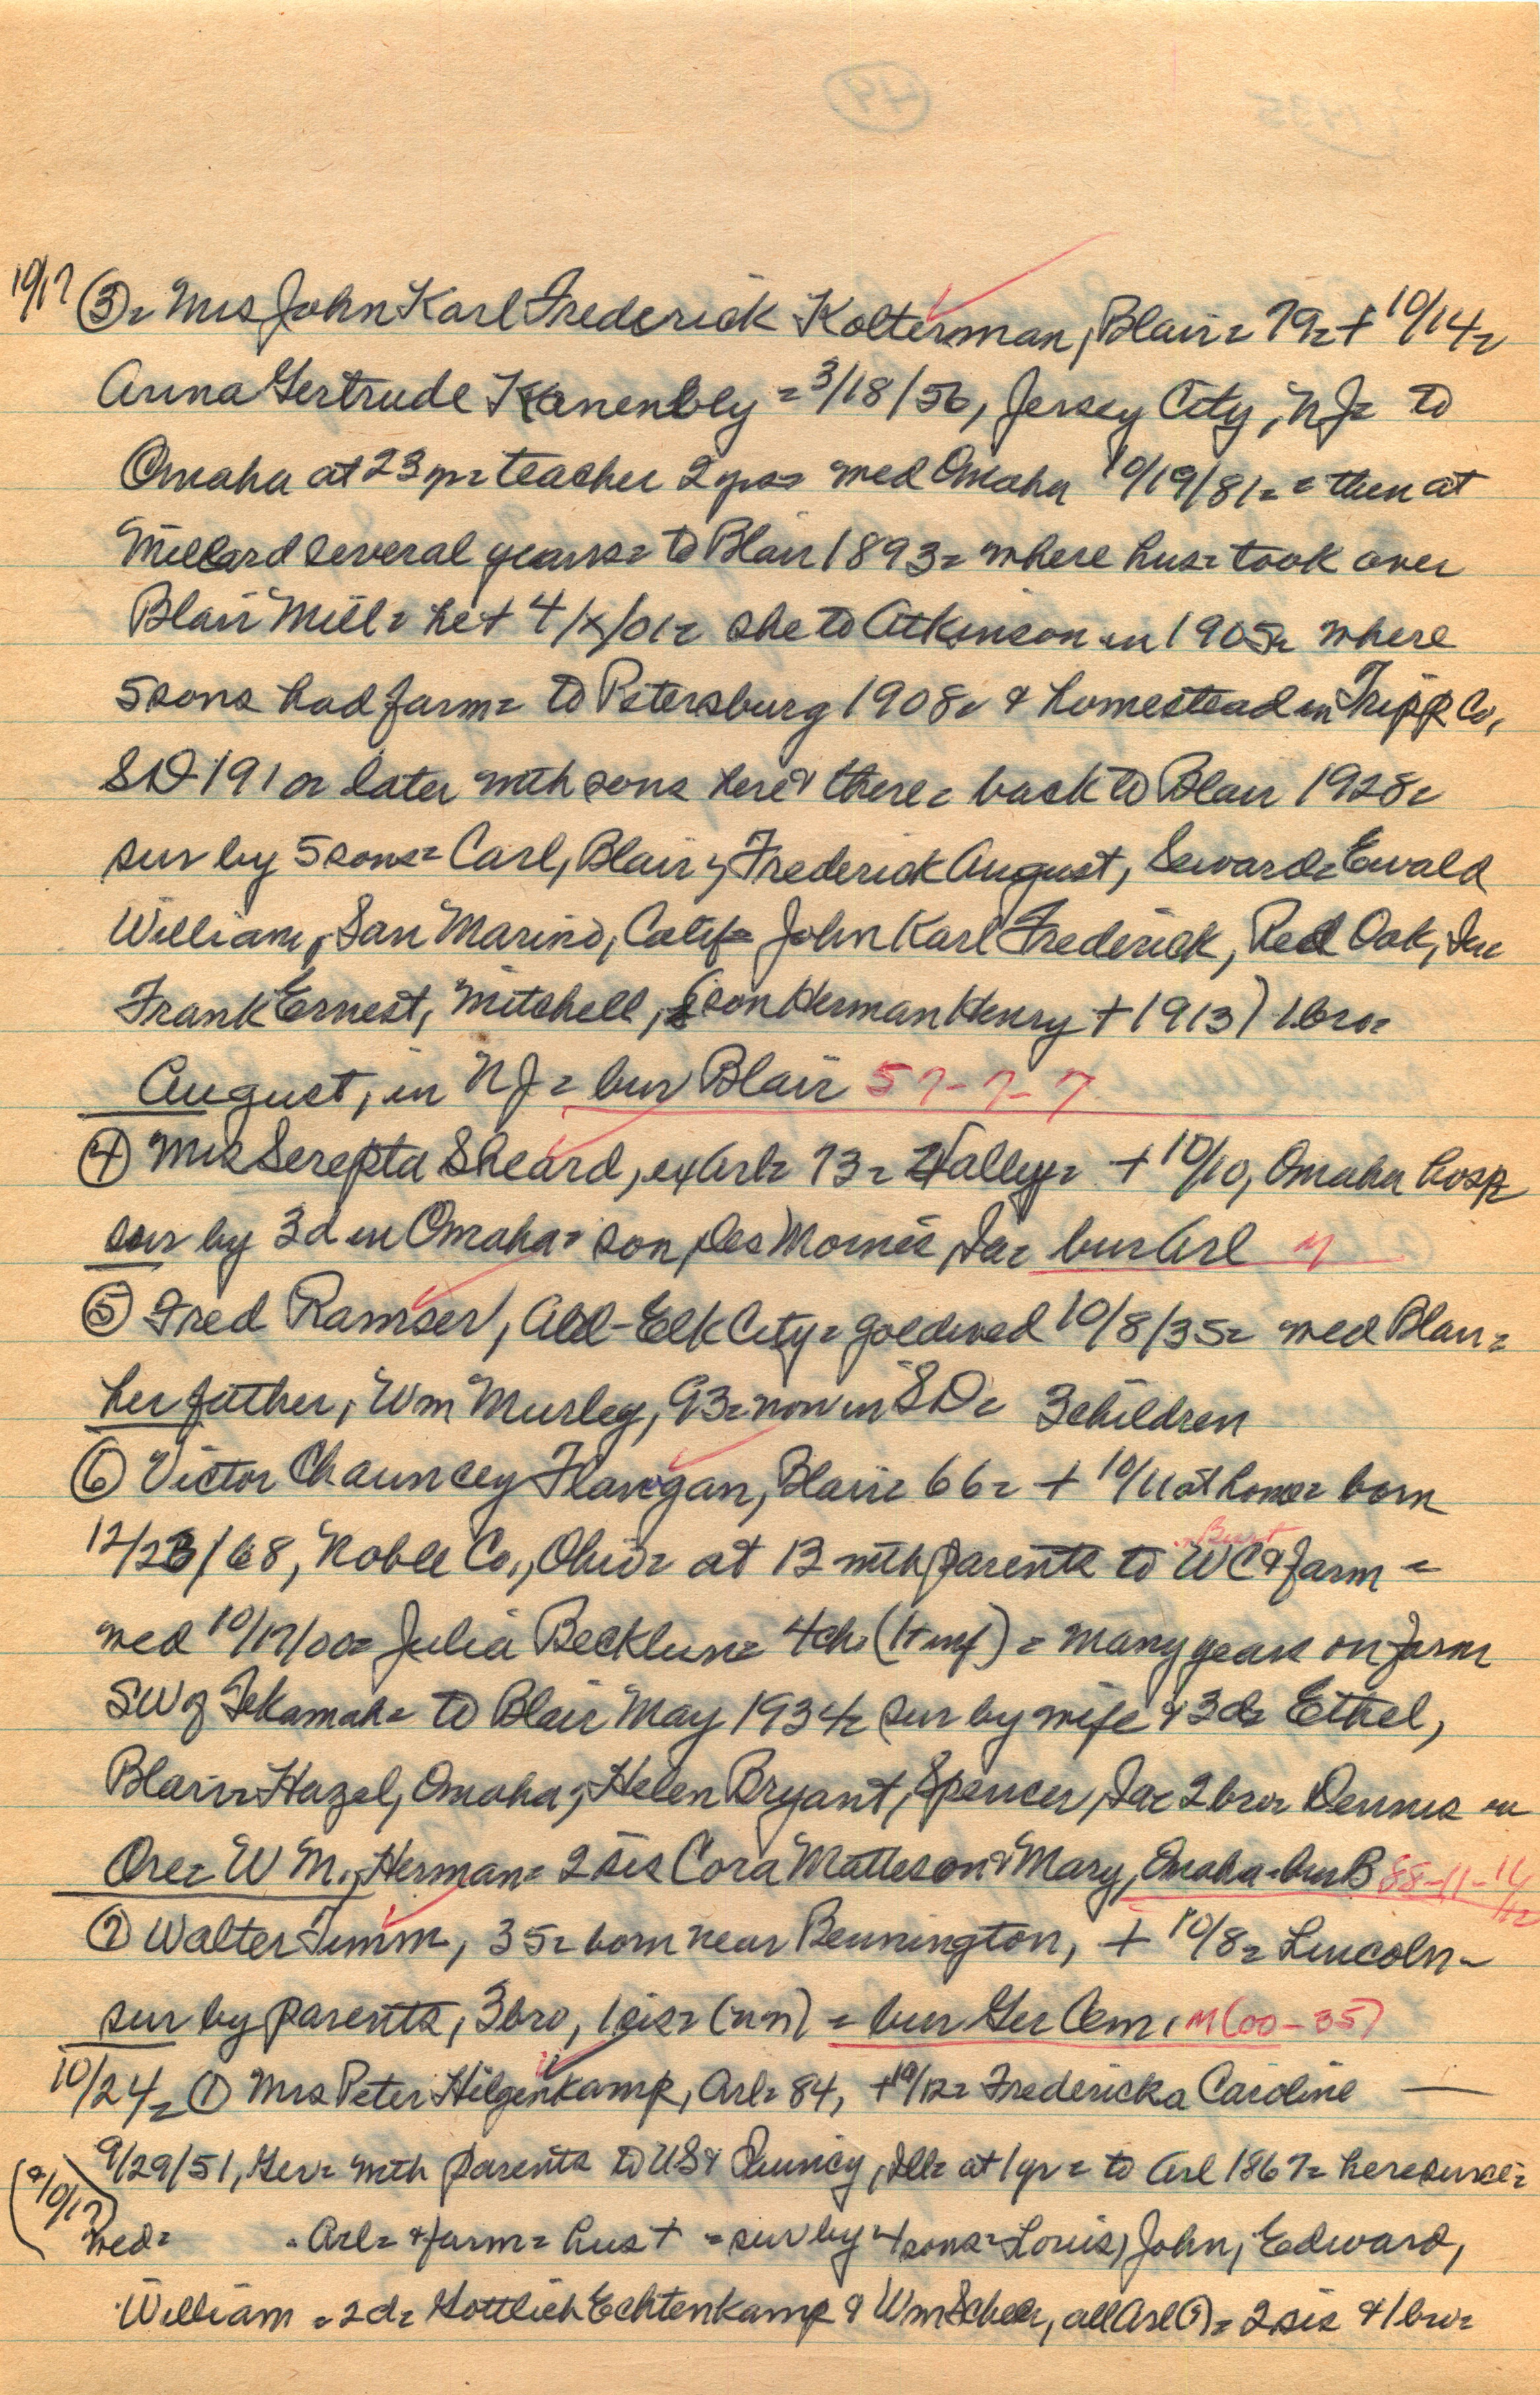 10/17 ③= Mrs John Karl Frederick Kolterman, Blair= 79= + 10/14=
Anna Gertrude = 3/18/56, Jersey City, NJ= to
Omaha at 23 yr= teacher 2 yrs= wed Omaha 10/19/81= = then at
Millard several years= to Blair 1893= where hus= took over
Blair Mill= he + 4/x/01= she to Atkinson in 1905= where
5 sons had farm= to Petersburg 1908= & homestead in Tripp Co,
SD 191 or later with sons here & there= back to Blair 1928=
sur by 5 sons= Carl, Blair; Frederick August, Seward= Ewald
William, San Marino, Calif= John Karl Frederick, Red Oak, Ia=
Frank Ernest, Mitchell, (son Herman Henry + 1913) 1 bro=
August, in NJ= bur Blair 57-7-7
④ Mrs Serepta Sheard, ex Arl= 73= Valley= + 10/10, Omaha hosp
sur by 3d in Omaha= son, Des Moines, Ia= bur Arl M
⑤ Fred Ramser, Elk City= goldwed 10/8/35= wed Blair=
her father, Wm Murley, 93= now in SD= 3 children
⑥ Victor Chauncey Flanogan, Blair= 66= + 10/11 at home= born
12/23/68, Noble Co., Ohio= at 13 with parents to Burt WC & farm =
wed 10/17/00= Julia Becklun= 4 ch= (1 + inf) = many years on farm
SW of Tekamah= to Blair May 1934= sur by wife & 3d= Ethel,
Blair= Hazel, Omaha; Helen Bryant, Spencer, Ia= 2 bro= Dennis in
Ore= W M., Herman= 2 sis Cora Matteson & Mary, Omaha= bur B 88-11-11/12
⑦ Walter Timm, 35= born near Bennington, + 10/8= Lincoln=
sur by parents, 3 bro, 1 sis= (nn) = bur Ger Cem, M (00-35)
10/24= ① Mrs Peter Hilgenkamp, Arl= 84, + 10/12= Fredericka Caroline —
9/29/51, Ger= with parents to US & Quincy, Ill= at 1 yr= to Arl 1867= here since=
(& 10/17) wed= . Arl= & farm= hus + = sur by 4 sons= Louis, John, Edward,
William = 2d= Gottlieb Echtenkamp & Wm Scheer, all Arl (?)= 2 sis & 1 bro=